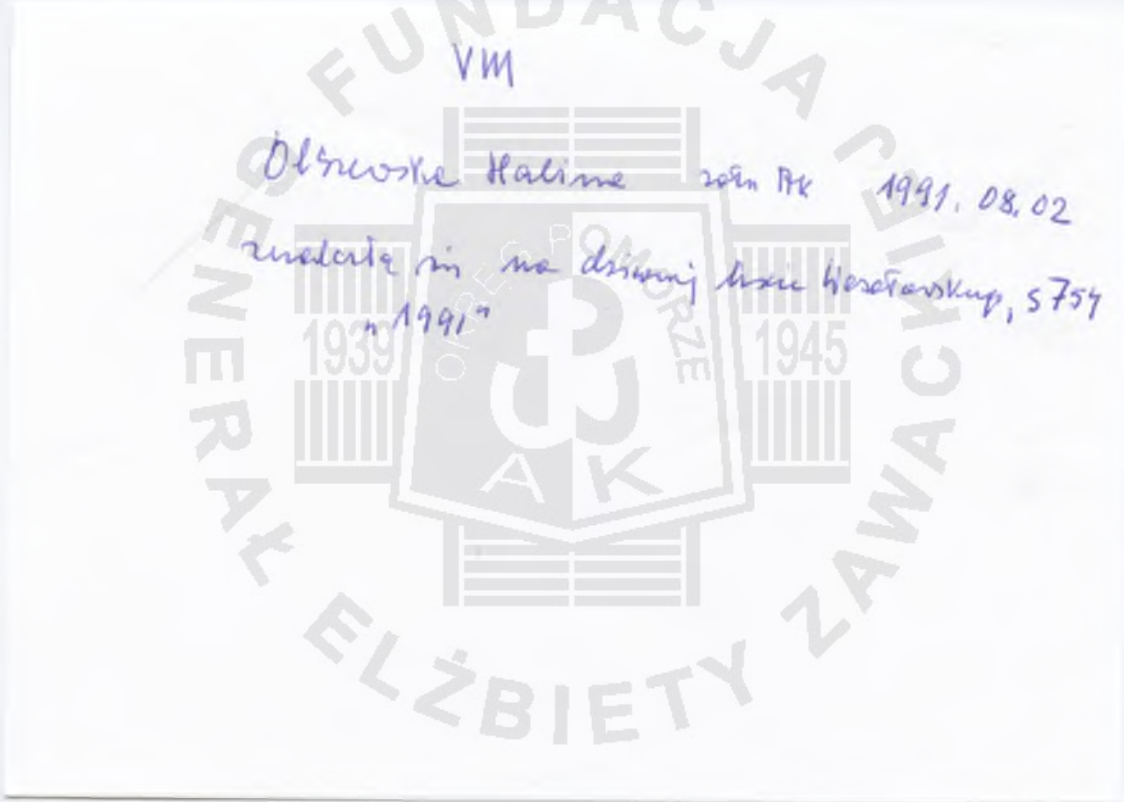 VM
Olszewska Halina żołn AK 1991.08.02
znalazła się na dziwnej liście Wesołowskiego, s 754
"1991"
FUNDACJA GENERAŁ ELŻBIETY ZAWACKIEJ
OKRĘG POMORZE
1939 1945
AK